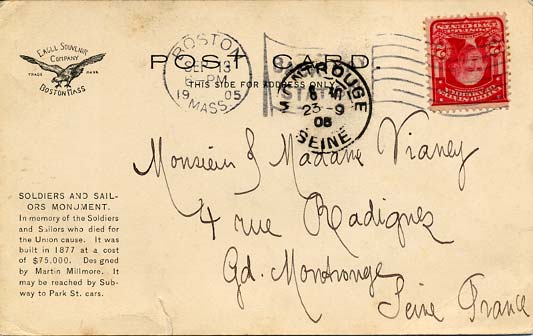 EAGLE SOUVENIR
COMPANY
TRADE MARK
BOSTON MASS
POST CARD.
THIS SIDE FOR ADDRESS ONLY
BOSTON
SEP 13
PM
1905
MASS.
MONTROUGE
23-9
05
SEINE
Monsieur & Madame Vianey
4 rue Radiguez
Gd. Montrouge
Seine France
SOLDIERS AND SAIL-
ORS MONUMENT.
In memory of the Soldiers
and Sailors who died for
the Union cause. It was
built in 1877 at a cost
of $75.000. Designed
by Martin Millmore. It
may be reached by Sub-
way to Park St. cars.